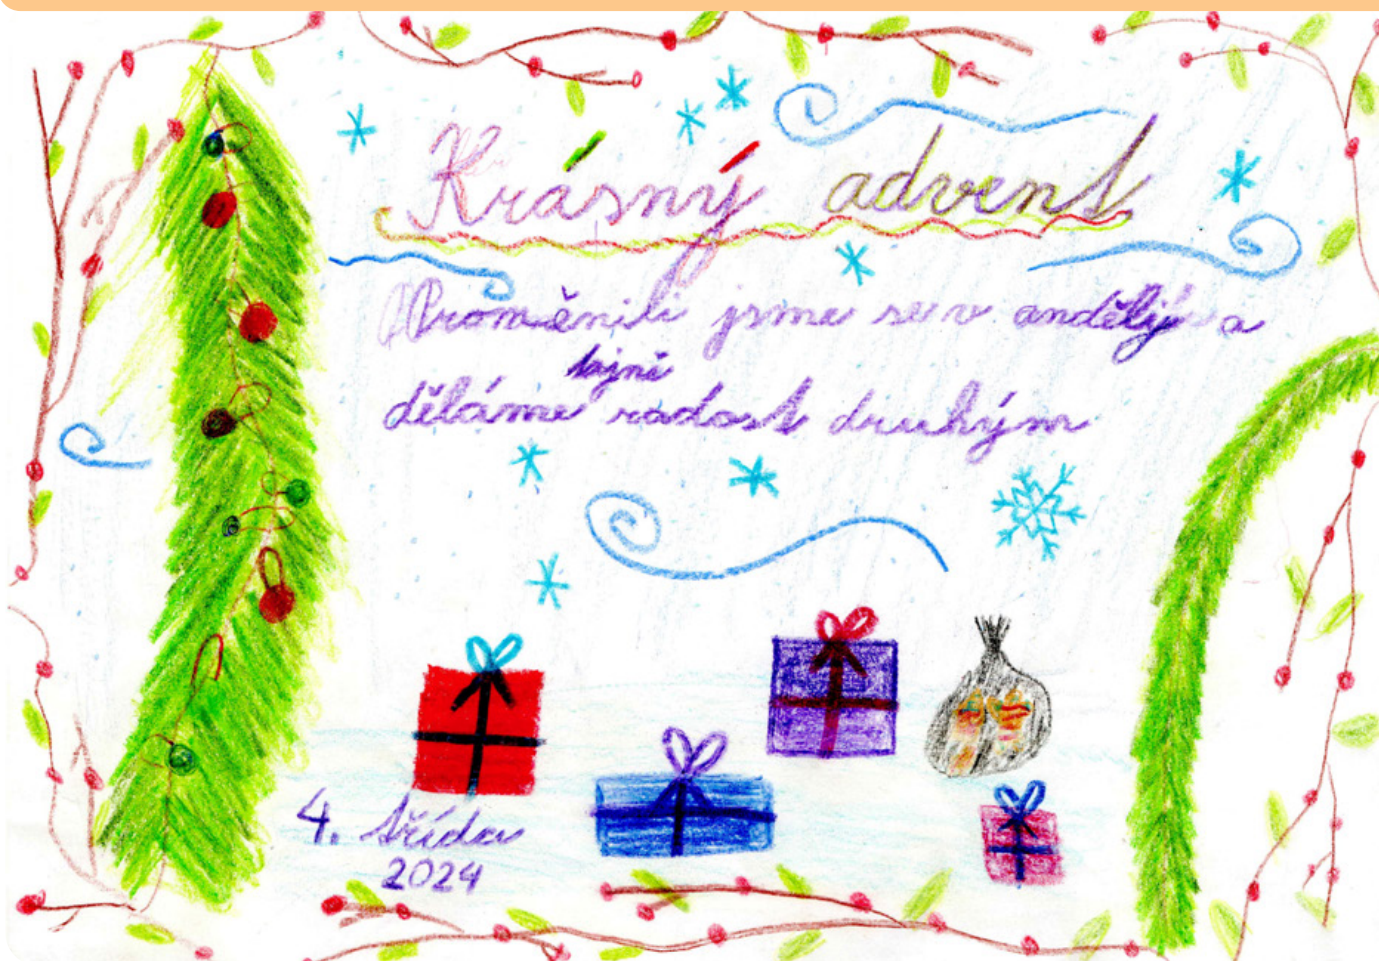 Krásný advent
Proměnili jsme se v anděly a
tajně
děláme radost druhým
4. třída
2024